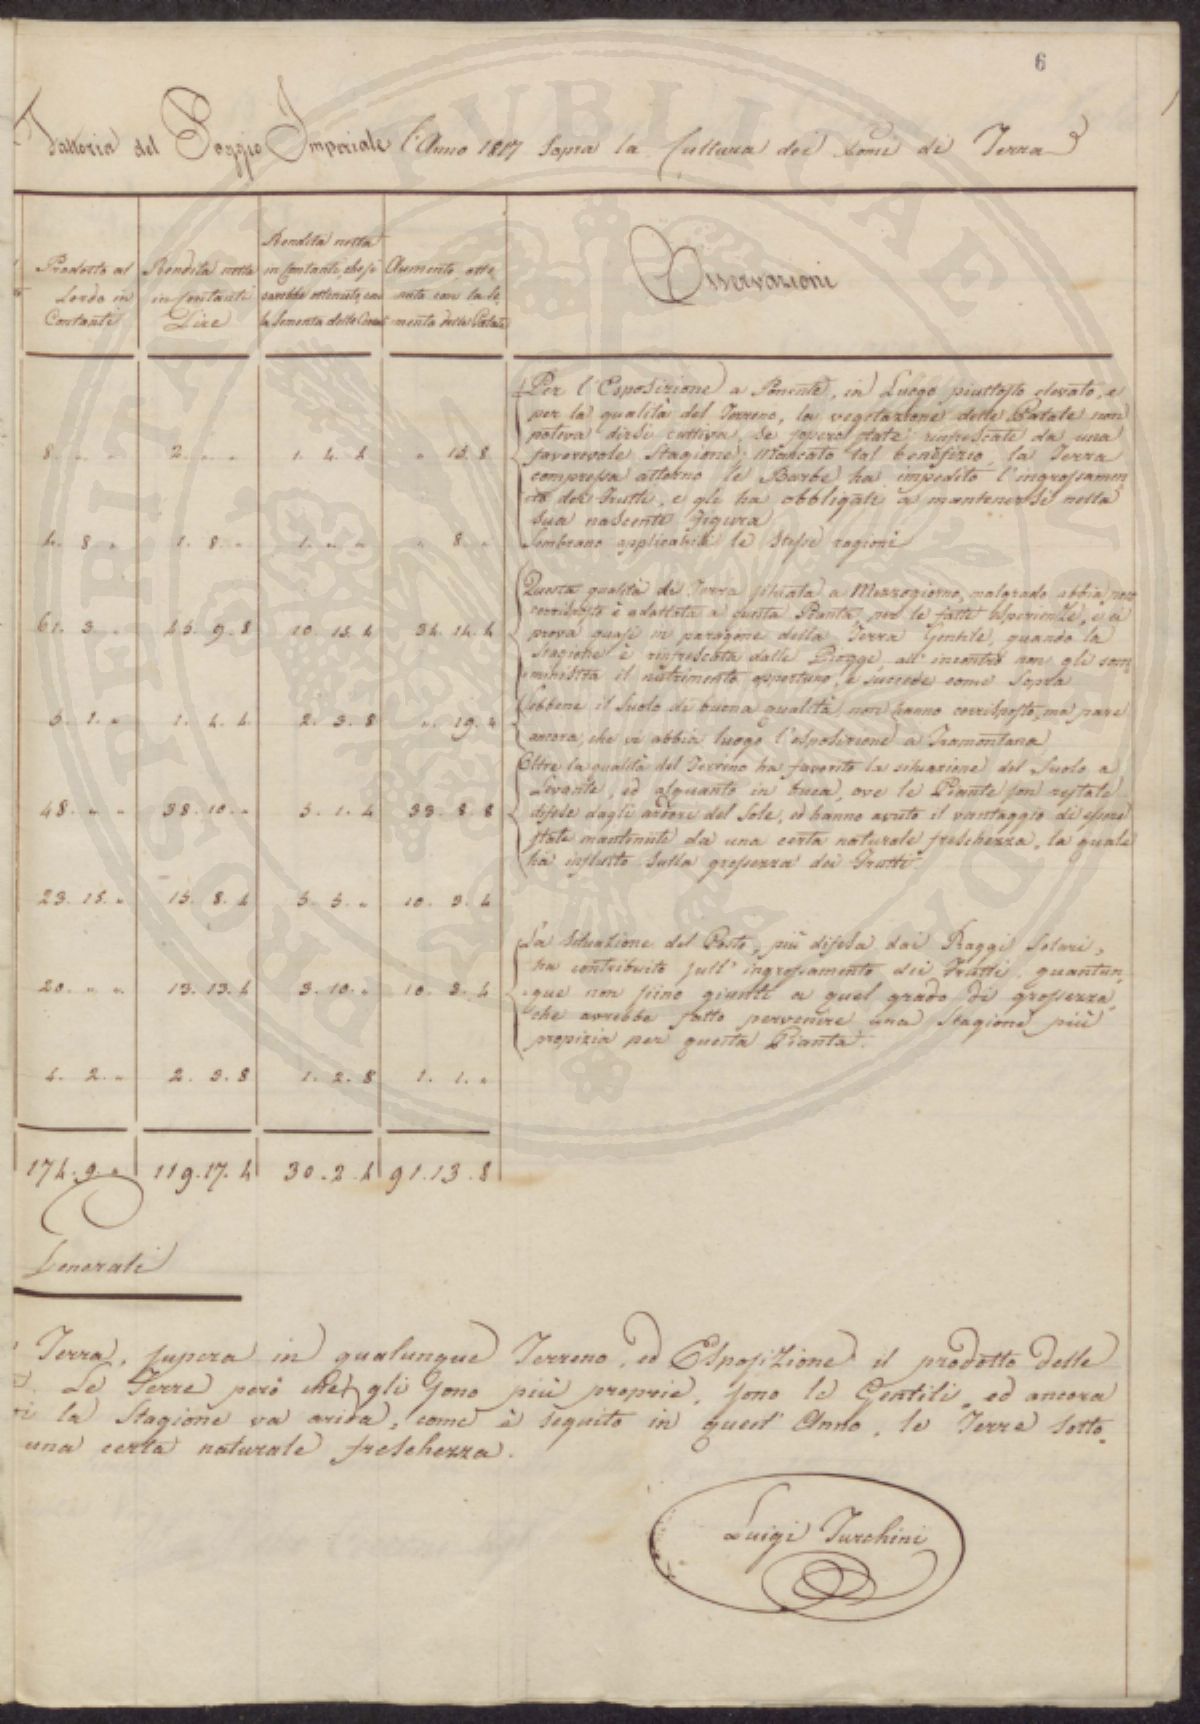 6
Fattoria del Poggio Imperiale l'Anno 1817 sopra la Cultura dei Pomi di Terra
Prodotto al Lordo in Contanti
Rendita netta in Contanti Lire
Rendita netta in Contanti, che si sarebbe ottenuta con la Sementa delle
Aumento otte, nuto con la Se, menta delle Patate
Osservazioni
8. " . "
2. " . "
1. 4. 4
" . 15. 8
Per l'Esposizione a Ponente, in Luogo piuttosto elevato, e
per la qualità del Terreno, la vegetazione delle Patate non
poteva dirsi cattiva, se fossero state rinfrescate da una
favorevole Stagione; Mancato tal benefizio, la Terra
compressa attorno le Barbe ha impedito l'ingrossamen,
to dei Frutti, e gli ha obbligati a mantenersi nella
sua nascente figura
4. 8. "
1. 8. "
1. " . "
" . 8. "
Sembrano applicabili le stesse ragioni
61. 3. "
45. 9. 8
10. 15. 4
34. 14. 4
Questa qualità di Terra situata a Mezzogiorno, malgrado abbia poco
corrisposto è adattata a questa Pianta, per le fatte esperienze, e si
prova quasi in paragone della Terra Gentile, quando la
Stagione è rinfrescata dalle Piogge, all'incontro non gli som,
ministra il nutrimento opportuno, e succede come sopra
5. 1. "
1. 4. 4
2. 3. 8
" . 19. 4
Sebbene il Suolo di buona qualità, non hanno corrisposto, ma pare
ancora, che vi abbia luogo l'esposizione a Tramontana
48. " . "
38. 10. "
5. 1. 4
33. 8. 8
Oltre la qualità del Terreno ha favorito la situazione del Suolo a
Levante, ed alquanto in buca, ove le Piante son restate
difese dagli ardori del Sole, ed hanno avuto il vantaggio di essere
state mantenute da una certa naturale freschezza, la quale
ha influito sulla grossezza dei Frutti
23. 15. "
15. 8. 4
5. 5. "
10. 3. 4
20. " . "
13. 13. 4
3. 10. "
10. 3. 4
La situazione del Posto, più difesa dai Raggi Solari,
ha contribuito sull'ingrossamento dei Frutti, quantun,
que non siino giunti a quel grado di grossezza,
che avrebbe fatto pervenire una Stagione più
propizia per questa Pianta.
4. 2. "
2. 3. 8
1. 2. 8
1. 1. "
174. 9. "
119. 17. 4
30. 2. 4
91. 13. 8
Generali
Terra, supera in qualunque Terreno, ed Esposizione il prodotto delle
Le Terre però che gli sono più proprie, sono le Gentili, ed ancora
la Stagione va arida, come è seguito in quest'Anno, le Terre sotto,
una certa naturale freschezza.
Luigi Turchini